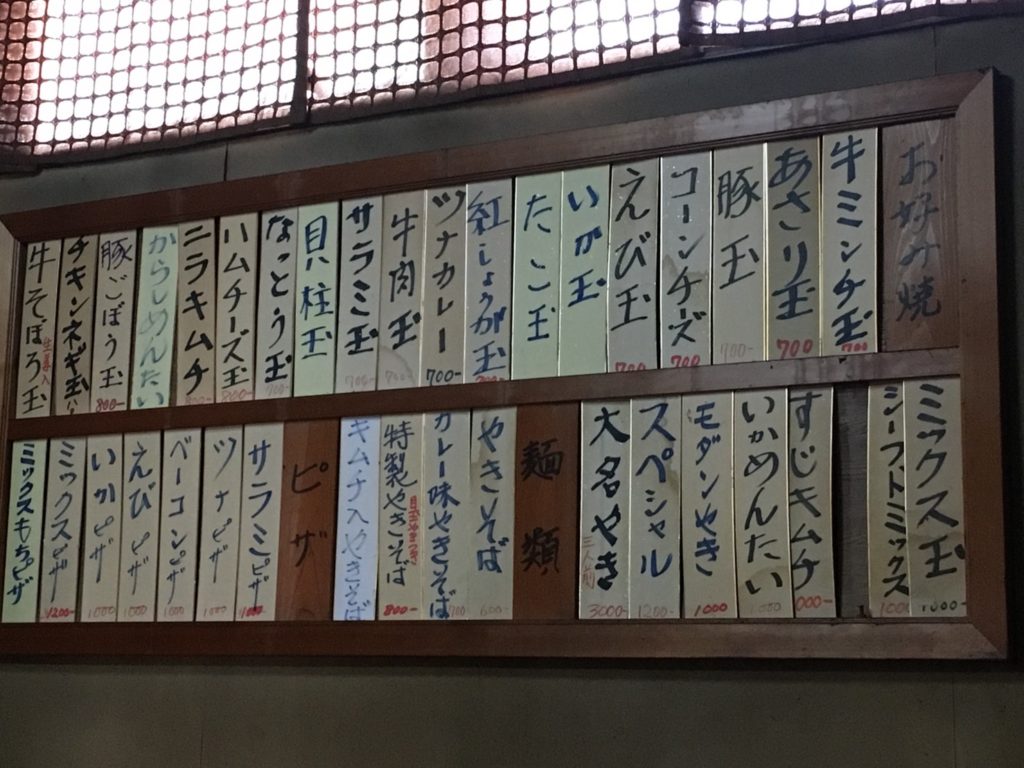 お好み焼
牛ミンチ玉 700
あさり玉 700
豚玉 700-
コーンチーズ 700
えび玉 700
いか玉
たこ玉
紅しょうが玉 700
ツナカレー 700-
牛肉玉 700-
サラミ玉 700-
貝柱玉
なっとう玉 700
ハムチーズ玉 800-
ニラキムチ 800-
からしめんたい
豚ごぼう玉 800-
チキンネギ玉
牛そぼろ玉
ミックス玉 1000-
シーフードミックス 1000
すじキムチ 000-
いかめんたい 1000
モダンやき 1000
スペシャル 1200-
大名やき 三人前 3000-
麺類
やきそば 600-
カレー味やきそば 700
特製やきそば 目玉やきつき 800-
キムチ入やきそば
ピザ
サラミピザ 1000
ツナピザ 1000
ベーコンピザ 1000
えびピザ 1000
いかピザ 1000
ミックスピザ 1200-
ミックスもちピザ